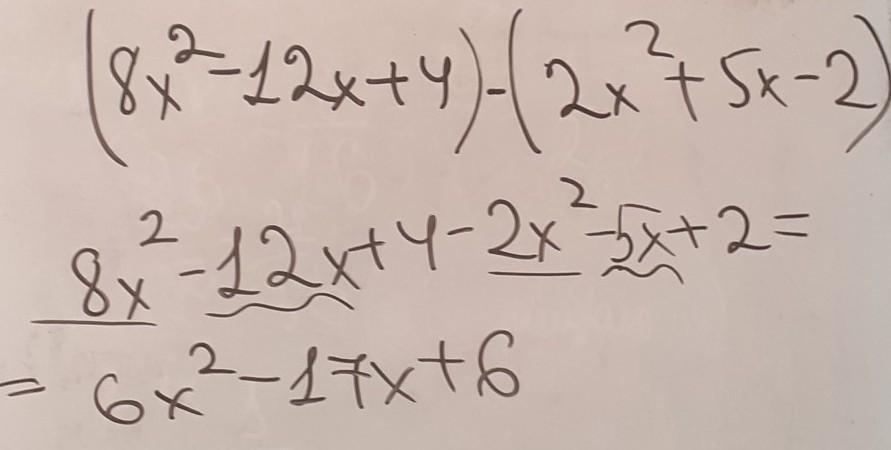 (8x²-12x+4)-(2x²+5x-2)
8x²-12x+4-2x²-5x+2=
=6x²-17x+6